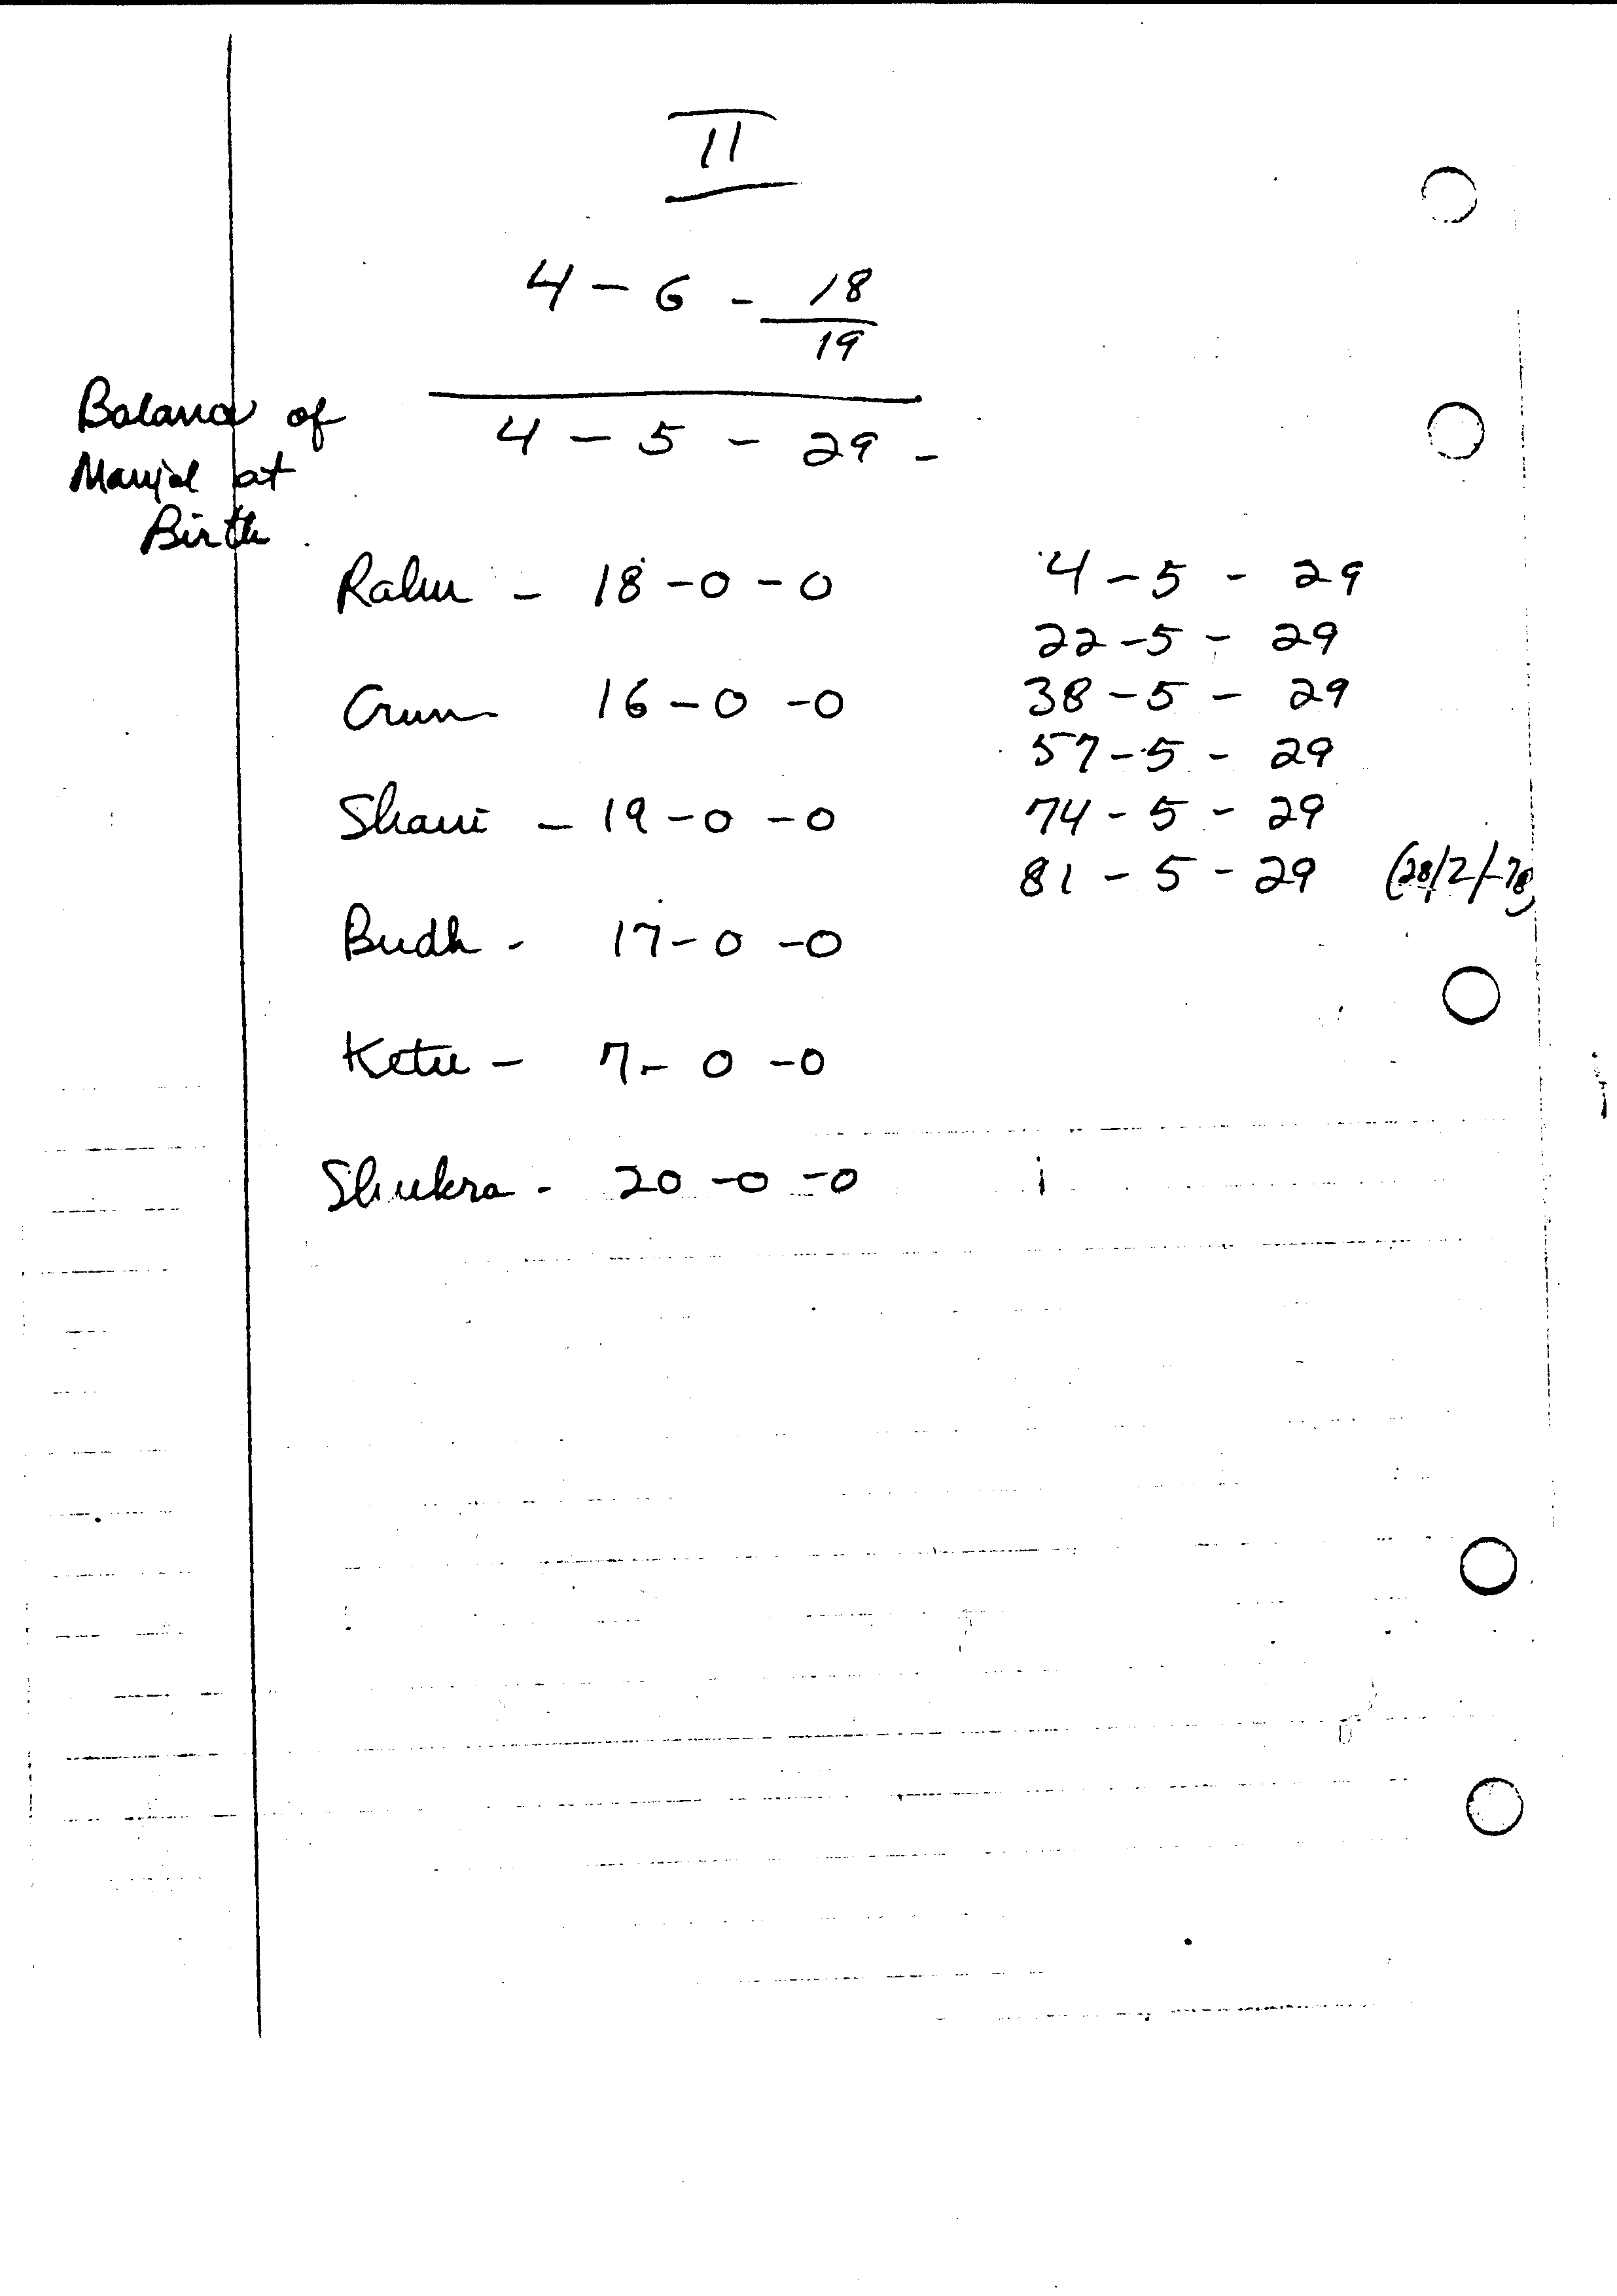 II
4 - 6 - 18
19
Balance of 4 - 5 - 29 -
Mangal at
Birth
Rahu - 18 - 0 - 0 4 - 5 - 29
22 - 5 - 29
Guru 16 - 0 - 0 38 - 5 - 29
57 - 5 - 29
Shani - 19 - 0 - 0 74 - 5 - 29
81 - 5 - 29 (28/2/-78)
Budh - 17 - 0 - 0
Ketu - 7 - 0 - 0
Shukra - 20 - 0 - 0